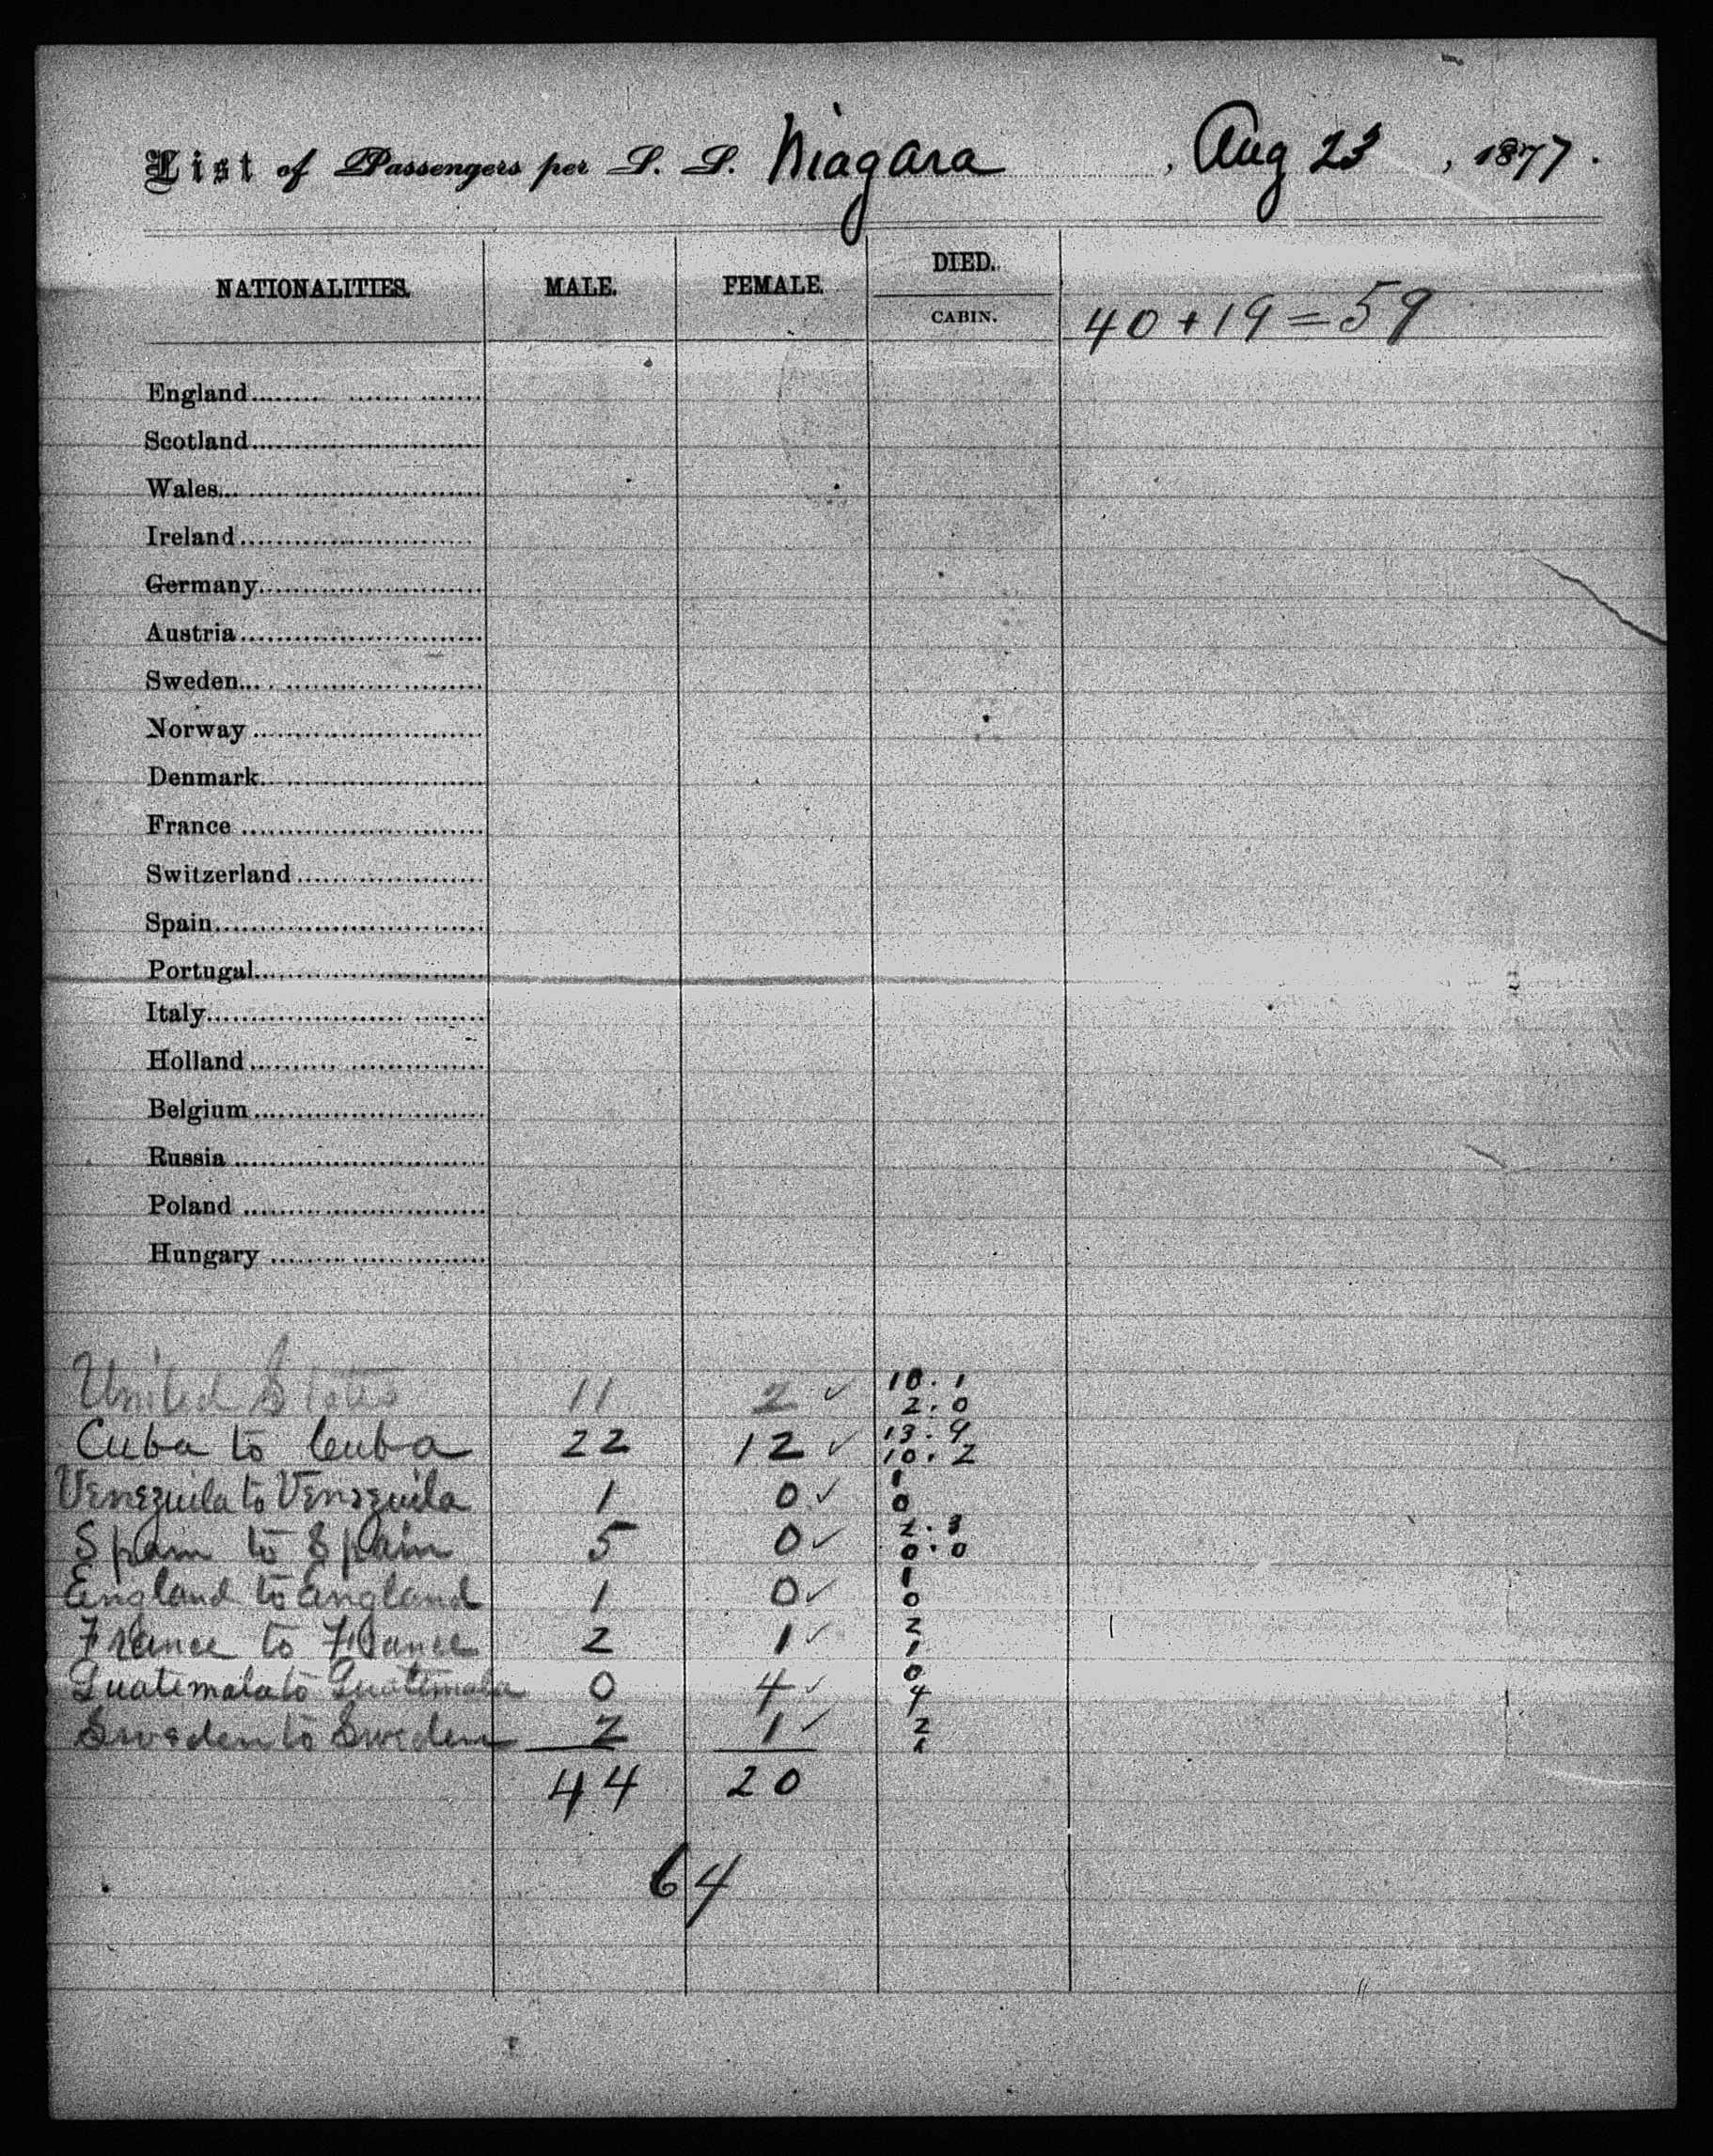 List of Passengers per S. S. Niagara, Aug 23, 1877.
NATIONALITIES. MALE. FEMALE. DIED.
CABIN. 40 + 19 = 59
England
Scotland
Wales
Ireland
Germany
Austria
Sweden
Norway
Denmark
France
Switzerland
Spain
Portugal
Italy
Holland
Belgium
Russia
Poland
Hungary
United States 11 2 ✓ 10. 1
2. 0
Cuba to Cuba 22 12 ✓ 13. 9
10. 2
Venezuila to Venezuila 1 0 ✓ 1
0
Spain to Spain 5 0 ✓ 2. 3
0. 0
England to England 1 0 ✓ 1
0
France to France 2 1 ✓ 2
1
Guatemala to Guatemala 0 4 ✓ 0
4
Sweden to Sweden 2 1 ✓ 2
1
44 20
64